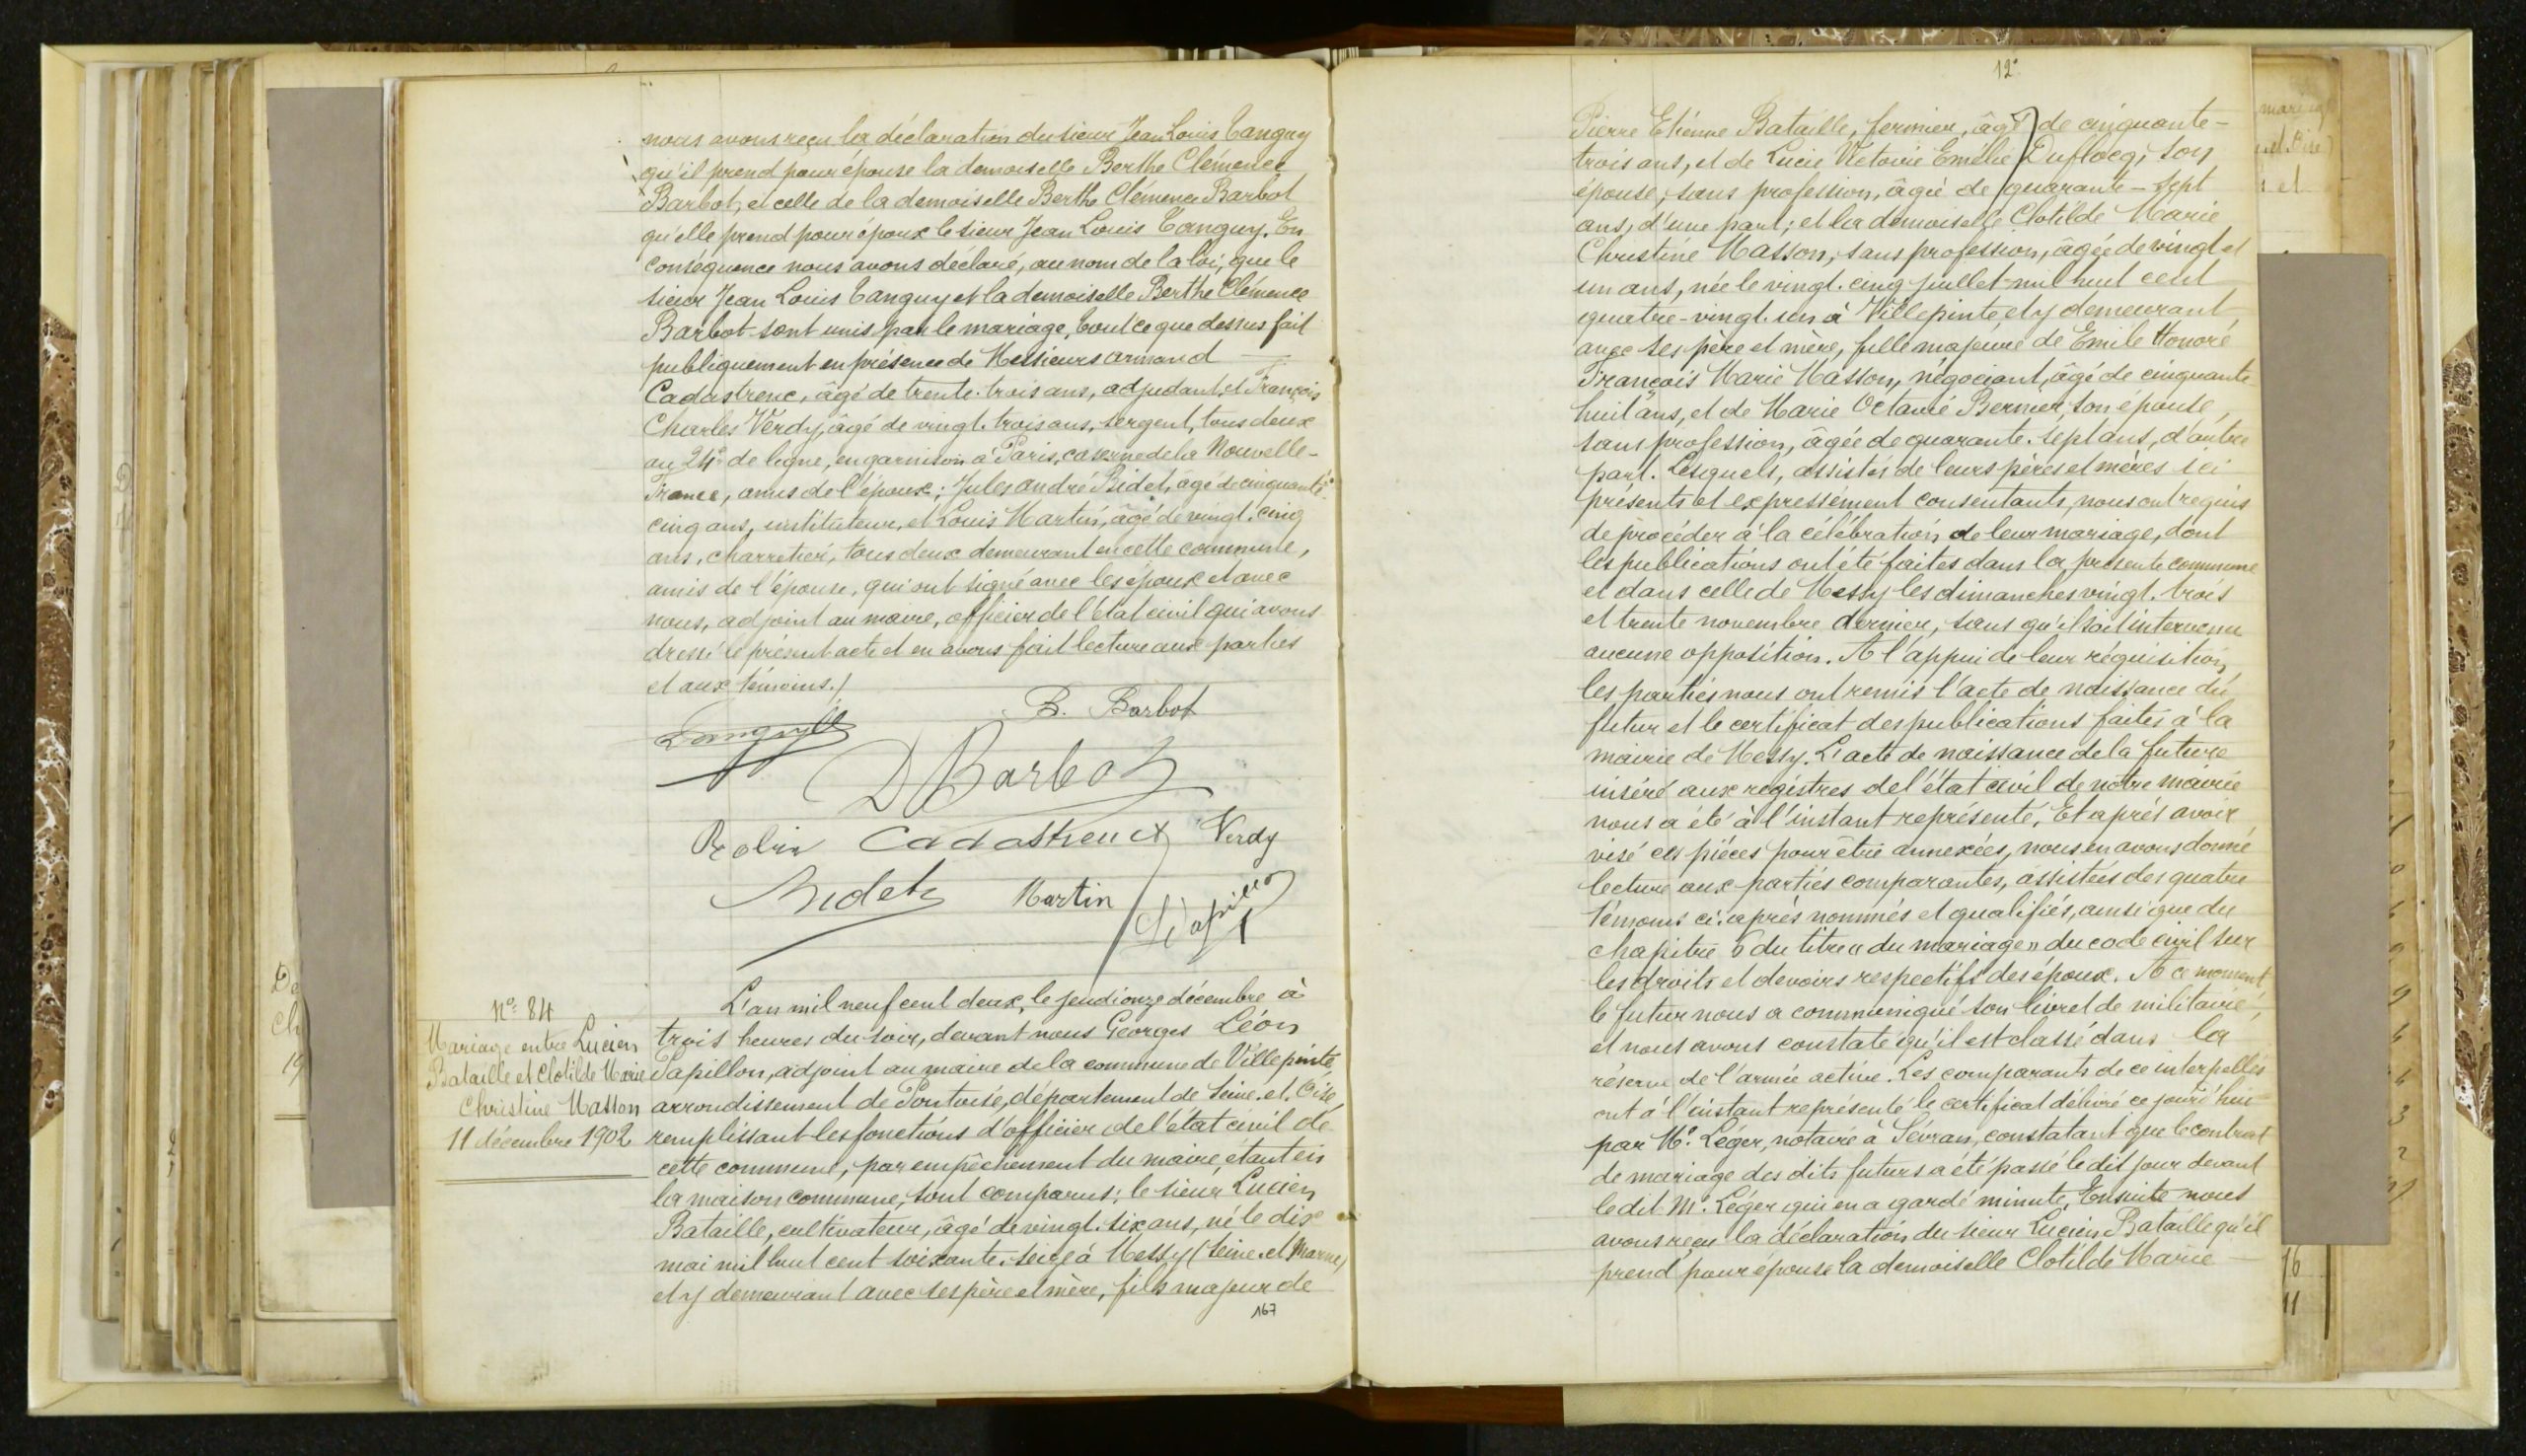 nous avons reçu la déclaration du sieur Jean Louis Tanguy
qu'il prend pour épouse la demoiselle Berthe Clémence
Barbot, et celle de la demoiselle Berthe Clémence Barbot
qu'elle prend pour époux le sieur Jean Louis Tanguy. En
conséquence nous avons déclaré, au nom de la loi, que le
sieur Jean Louis Tanguy et la demoiselle Berthe Clémence
Barbot sont unis par le mariage, tout ce que dessus fait
publiquement en présence de Messieurs Armand —
Cadastreux, âgé de trente-trois ans, adjudant, et François
Charles Verdy, âgé de vingt-trois ans, sergent, tous deux
au 24e de ligne, en garnison à Paris, caserne de la Nouvelle-
France, amis de l'époux; Jules André Bidet, âgé de cinquante-
cinq ans, instituteur, et Louis Martin, âgé de vingt-cinq
ans, charretier, tous deux demeurant en cette commune,
amis de l'épouse, qui ont signé avec les époux et avec
nous, adjoint au maire, officier de l'état civil qui avons
dressé le présent acte et en avons fait lecture aux parties
et aux témoins./
B. Barbot
D Barbot
Robin Cadastreux Verdy
Bidet Martin
L. Papillon
N° 84
Mariage entre Lucien
Bataille et Clotilde Marie
Christine Masson
11 décembre 1902
L'an mil neuf cent deux, le jeudi onze décembre à
trois heures du soir, devant nous Georges Léon
Papillon, adjoint au maire de la commune de Villepinte,
arrondissement de Pontoise, département de Seine-et-Oise,
remplissant les fonctions d'officier de l'état civil de
cette commune, par empêchement du maire, étant en
la maison commune, sont comparus: le sieur Lucien
Bataille, cultivateur, âgé de vingt-six ans, né le dix
mai mil huit cent soixante-seize à Messy (Seine-et-Marne)
et y demeurant avec ses père et mère, fils majeur de
167
12e
Pierre Etienne Bataille, fermier, âgé de cinquante-
trois ans, et de Lucie Victoire Emélie Duflocq, son
épouse, sans profession, âgée de quarante-sept
ans, d'une part; et la demoiselle Clotilde Marie
Christine Masson, sans profession, âgée de vingt et
un ans, née le vingt-cinq juillet mil huit cent
quatre-vingt-un à Villepinte et y demeurant
avec ses père et mère, fille majeure de Emile Honoré
François Marie Masson, négociant, âgé de cinquante-
huit ans, et de Marie Octavie Bernier, son épouse,
sans profession, âgée de quarante-sept ans, d'autre
part. Lesquels, assistés de leurs pères et mères ici
présents et expressément consentants, nous ont requis
de procéder à la célébration de leur mariage, dont
les publications ont été faites dans la présente commune
et dans celle de Messy les dimanches vingt-trois
et trente novembre dernier, sans qu'il soit intervenu
aucune opposition. A l'appui de leur réquisition,
les parties nous ont remis l'acte de naissance du
futur et le certificat des publications faites à la
mairie de Messy. L'acte de naissance de la future
inséré aux registres de l'état civil de notre mairie
nous a été à l'instant représenté. Et après avoir
visé ces pièces pour être annexées, nous en avons donné
lecture aux parties comparantes, assistées des quatre
témoins ci-après nommés et qualifiés, ainsi que du
chapitre 6 du titre « du mariage » du code civil sur
les droits et devoirs respectifs des époux. A ce moment,
le futur nous a communiqué son livret de militaire,
et nous avons constaté qu'il est classé dans la
réserve de l'armée active. Les comparants de ce interpellés
ont à l'instant représenté le certificat délivré ce jourd'hui
par Me Léger, notaire à Sévran, constatant que le contrat
de mariage des dits futurs a été passé le dit jour devant
le dit Me Léger qui en a gardé minute. Ensuite nous
avons reçu la déclaration du sieur Lucien Bataille qu'il
prend pour épouse la demoiselle Clotilde Marie —